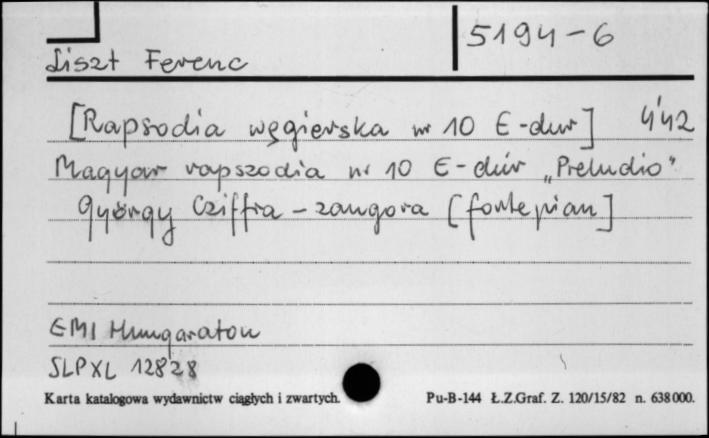 5194-6
Liszt Ferenc
[Rapsodia węgierska nr 10 E-dur] 4'42
Magyar rapszodia nr 10 E-dúr „Preludio"
György Cziffra - zongora [fortepian]
EMI Hungaraton
SLPXL 12828
Karta katalogowa wydawnictw ciągłych i zwartych. Pu-B-144 Ł.Z.Graf. Z. 120/15/82 n. 638000.